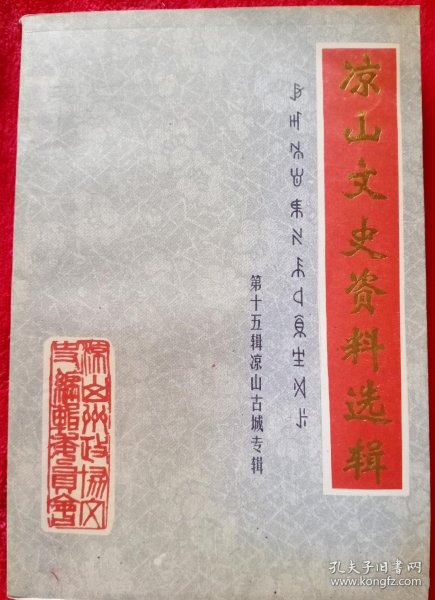 凉山文史资料选辑
第十五辑凉山古城专辑
凉山州政协文
史编辑委员会
孔夫子旧书网
www.kongfz.com